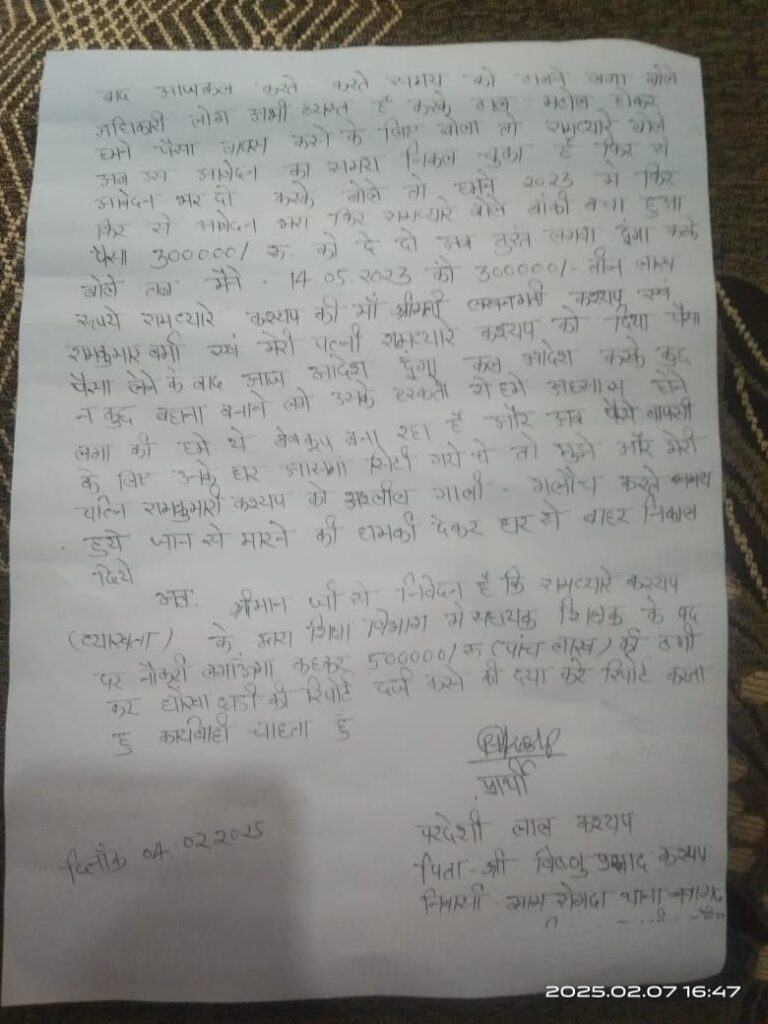 बाद आजकल करते करते समय को टालने लगा बोले
अधिकारी लोग अभी व्यस्त है करके टाल मटोल होकर
हमने पैसा वापस करने के लिए बोला तो रामप्यारे बोले
अब उस आवेदन का समय निकल चुका है फिर से
आवेदन भर दो करके बोले तो हमने 2023 मे फिर
फिर से आवेदन भरा फिर रामप्यारे बोले बांकी बचा हुआ
पैसा 300000/ रू. को दे दो अब तुरंत लगवा दुंगा करके
बोले तब मैने . 14.05.2023 को 300000/- तीन लाख
रूपये रामप्यारे कश्यप की माँ श्रीमती कश्यप एवं
रामकुमार वर्मा एवं मेरी पत्नी रामप्यारे कश्यप को दिया पैसा
पैसा लेने के बाद आज आदेश दुंगा कल आदेश करके कुछ
न कुछ बहाना बनाने लगे उसके हरकतो से हमे अभ्यास होने
लगा की हमे ये बेवकूफ बना रहा है और अब पैसे वापसी
के लिए उनके घर गये थे तो मुझे और मेरी
पत्नि रामकुमारी कश्यप को अश्लील गाली - गलौच करते समय
हुये जान से मारने की धमकी देकर घर से बाहर निकाल
दिये
अतः श्रीमान जी से निवेदन है कि रामप्यारे कश्यप
(व्याख्याता) के द्वारा शिक्षा विभाग मे सहायक शिक्षक के पद
पर नौकरी लगाऊंगा कहकर 500000/ रू (पांच लाख) की ठगी
कर धोखा धड़ी की रिपोर्ट दर्ज करने की दया करे रिपोर्ट करता
हु कार्यवाही चाहता हुं
प्रार्थी
परदेशी लाल कश्यप
पिता - श्री विष्णु प्रसाद कश्यप
दिनाँक 04.02.2025
निवासी - ग्राम थाना
2025.02.07 16:47